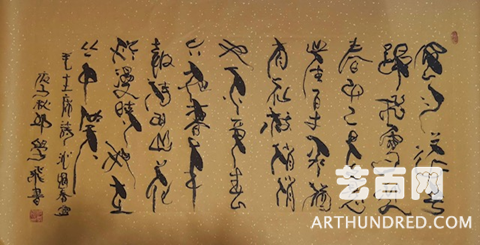 风雨送春
归飞雪迎
春到已是悬
崖百丈冰犹
有花枝俏俏
也不争春
只把春来
报待到山花
烂漫时她在
丛中笑
毛主席诗
庚子秋
书
艺百网
ARTHUNDRED.COM